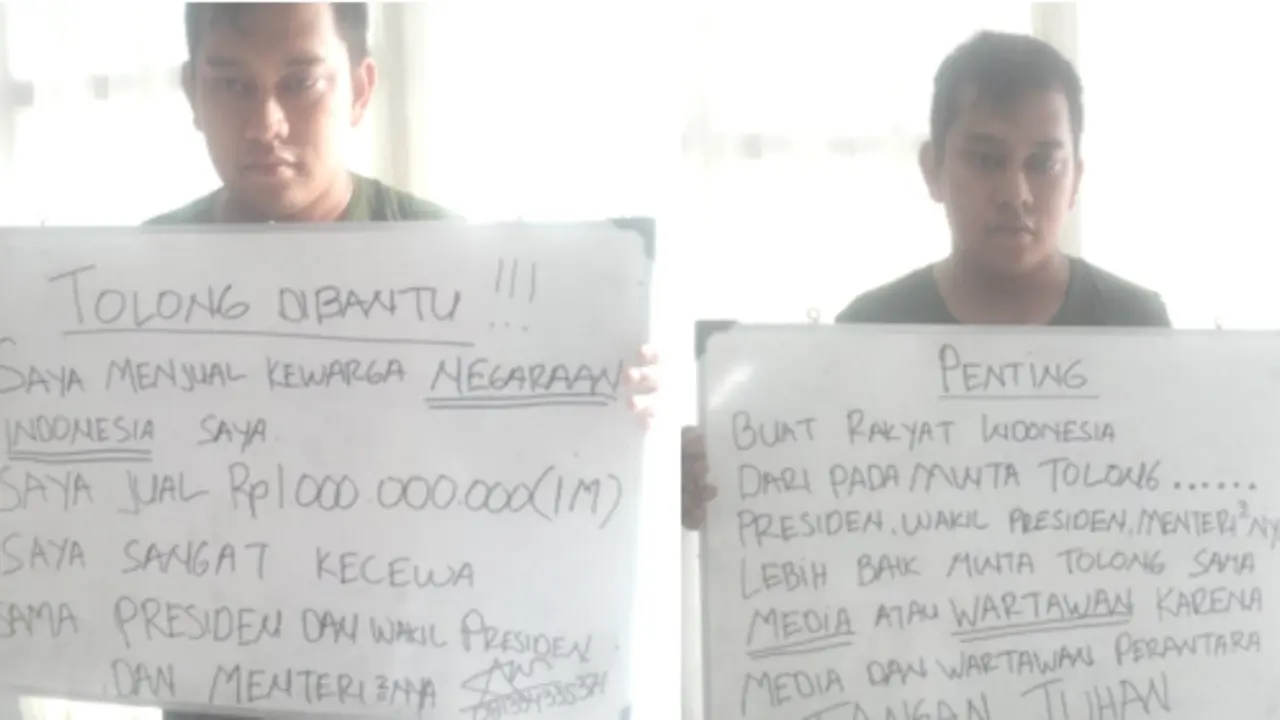 TOLONG DIBANTU !!!
SAYA MENJUAL KEWARGA NEGARAAN
INDONESIA SAYA
SAYA JUAL Rp1000.000.000(1M)
SAYA SANGAT KECEWA
SAMA PRESIDEN DAN WAKIL PRESIDEN
DAN MENTERI2NYA
PENTING
BUAT RAKYAT INDONESIA
DARI PADA MINTA TOLONG ......
PRESIDEN, WAKIL PRESIDEN, MENTERI2NY
LEBIH BAIK MINTA TOLONG SAMA
MEDIA ATAU WARTAWAN KARENA
MEDIA DAN WARTAWAN PERANTARA
TANGAN TUHAN